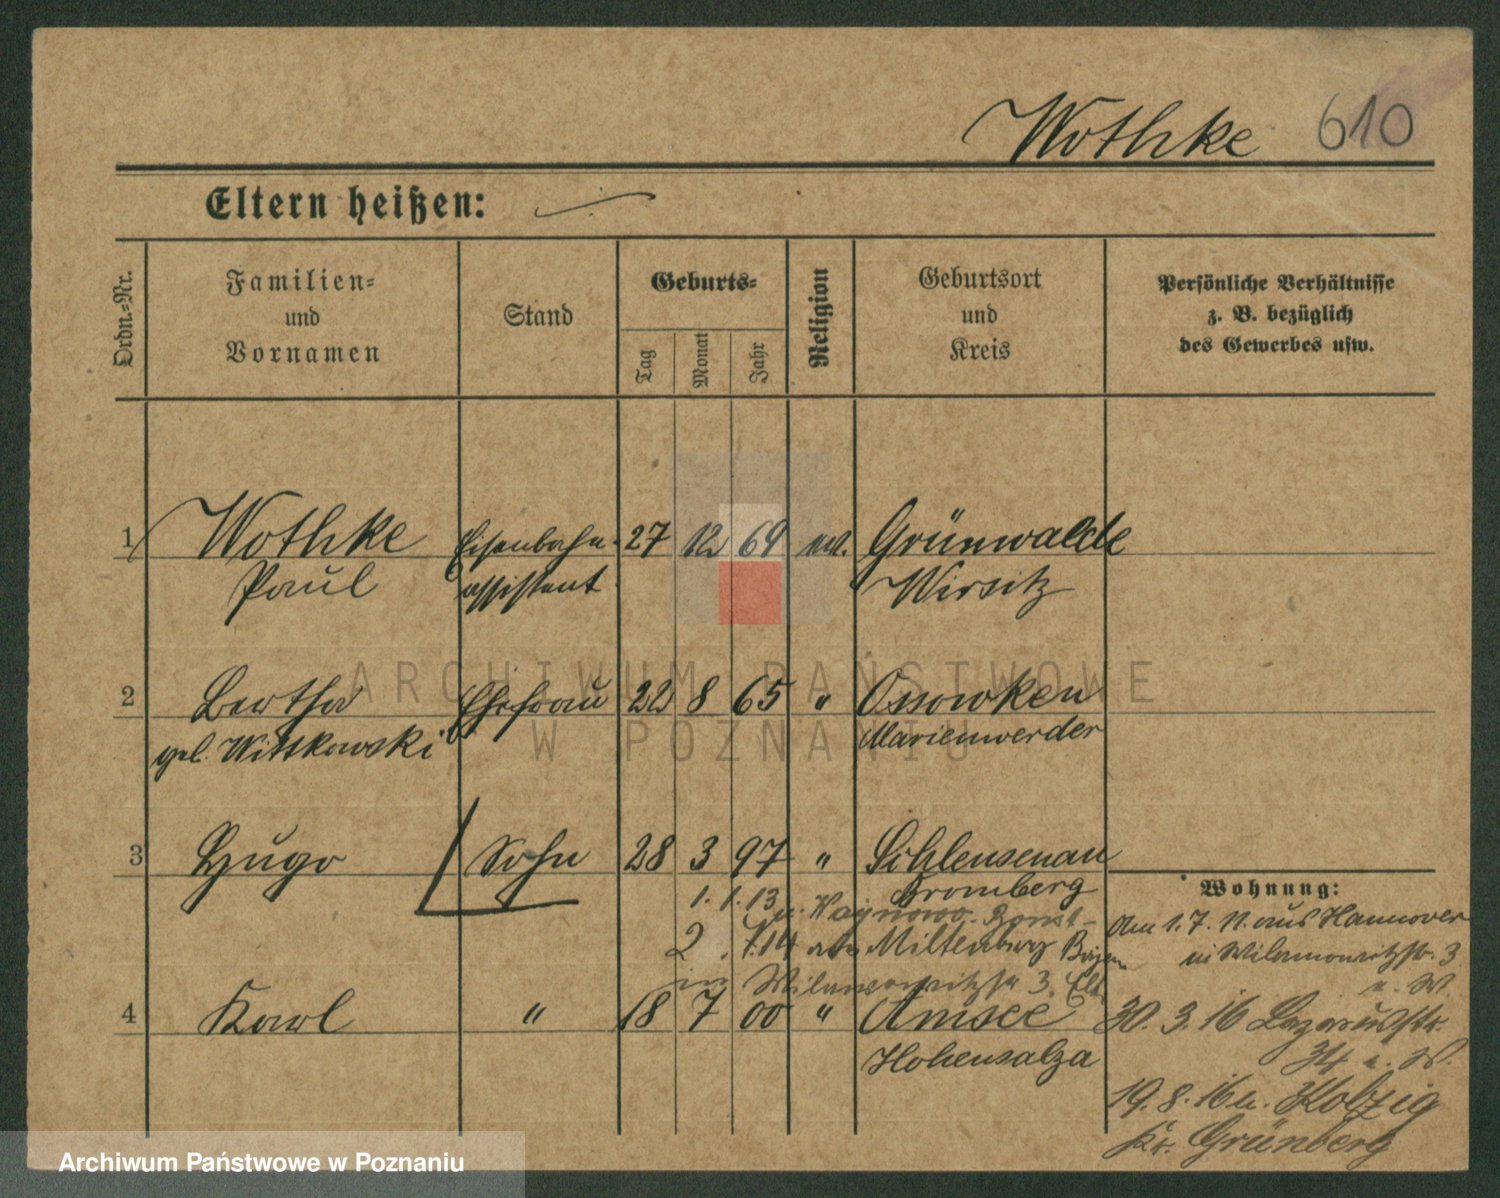 Wothke 610
Eltern heißen:
Ordn.-Nr.
Familien-
und
Vornamen
Stand
Geburts-
Tag
Monat
Jahr
Religion
Geburtsort
und
Kreis
Persönliche Verhältnisse
z. B. bezüglich
des Gewerbes usw.
1 Wothke Eisenbahn- 27 12 69 ev. Grünwalde
Paul assistent Wirsitz
2 Bertha Ehefrau 22 8 65 " Ossowken
geb. Wittkowski Marienwerder
3 Hugo Sohn 28 3 97 " Schleusenau
Bromberg
1. 1. 13 n. Waynowo
2. 1. 14 Miltenberg
Wilamowitzstr 3.
4 Karl " 18 7 00 " Amsee
Hohensalza
Wohnung:
Am 1. 7. 11. aus Hannover
in Wilamowitzstr. 3
30. 3. 16 Lazarusstr.
34
19. 8. 16 n. Kolzig
Kr. Grünberg
ARCHIWUM PAŃSTWOWE
W POZNANIU
Archiwum Państwowe w Poznaniu